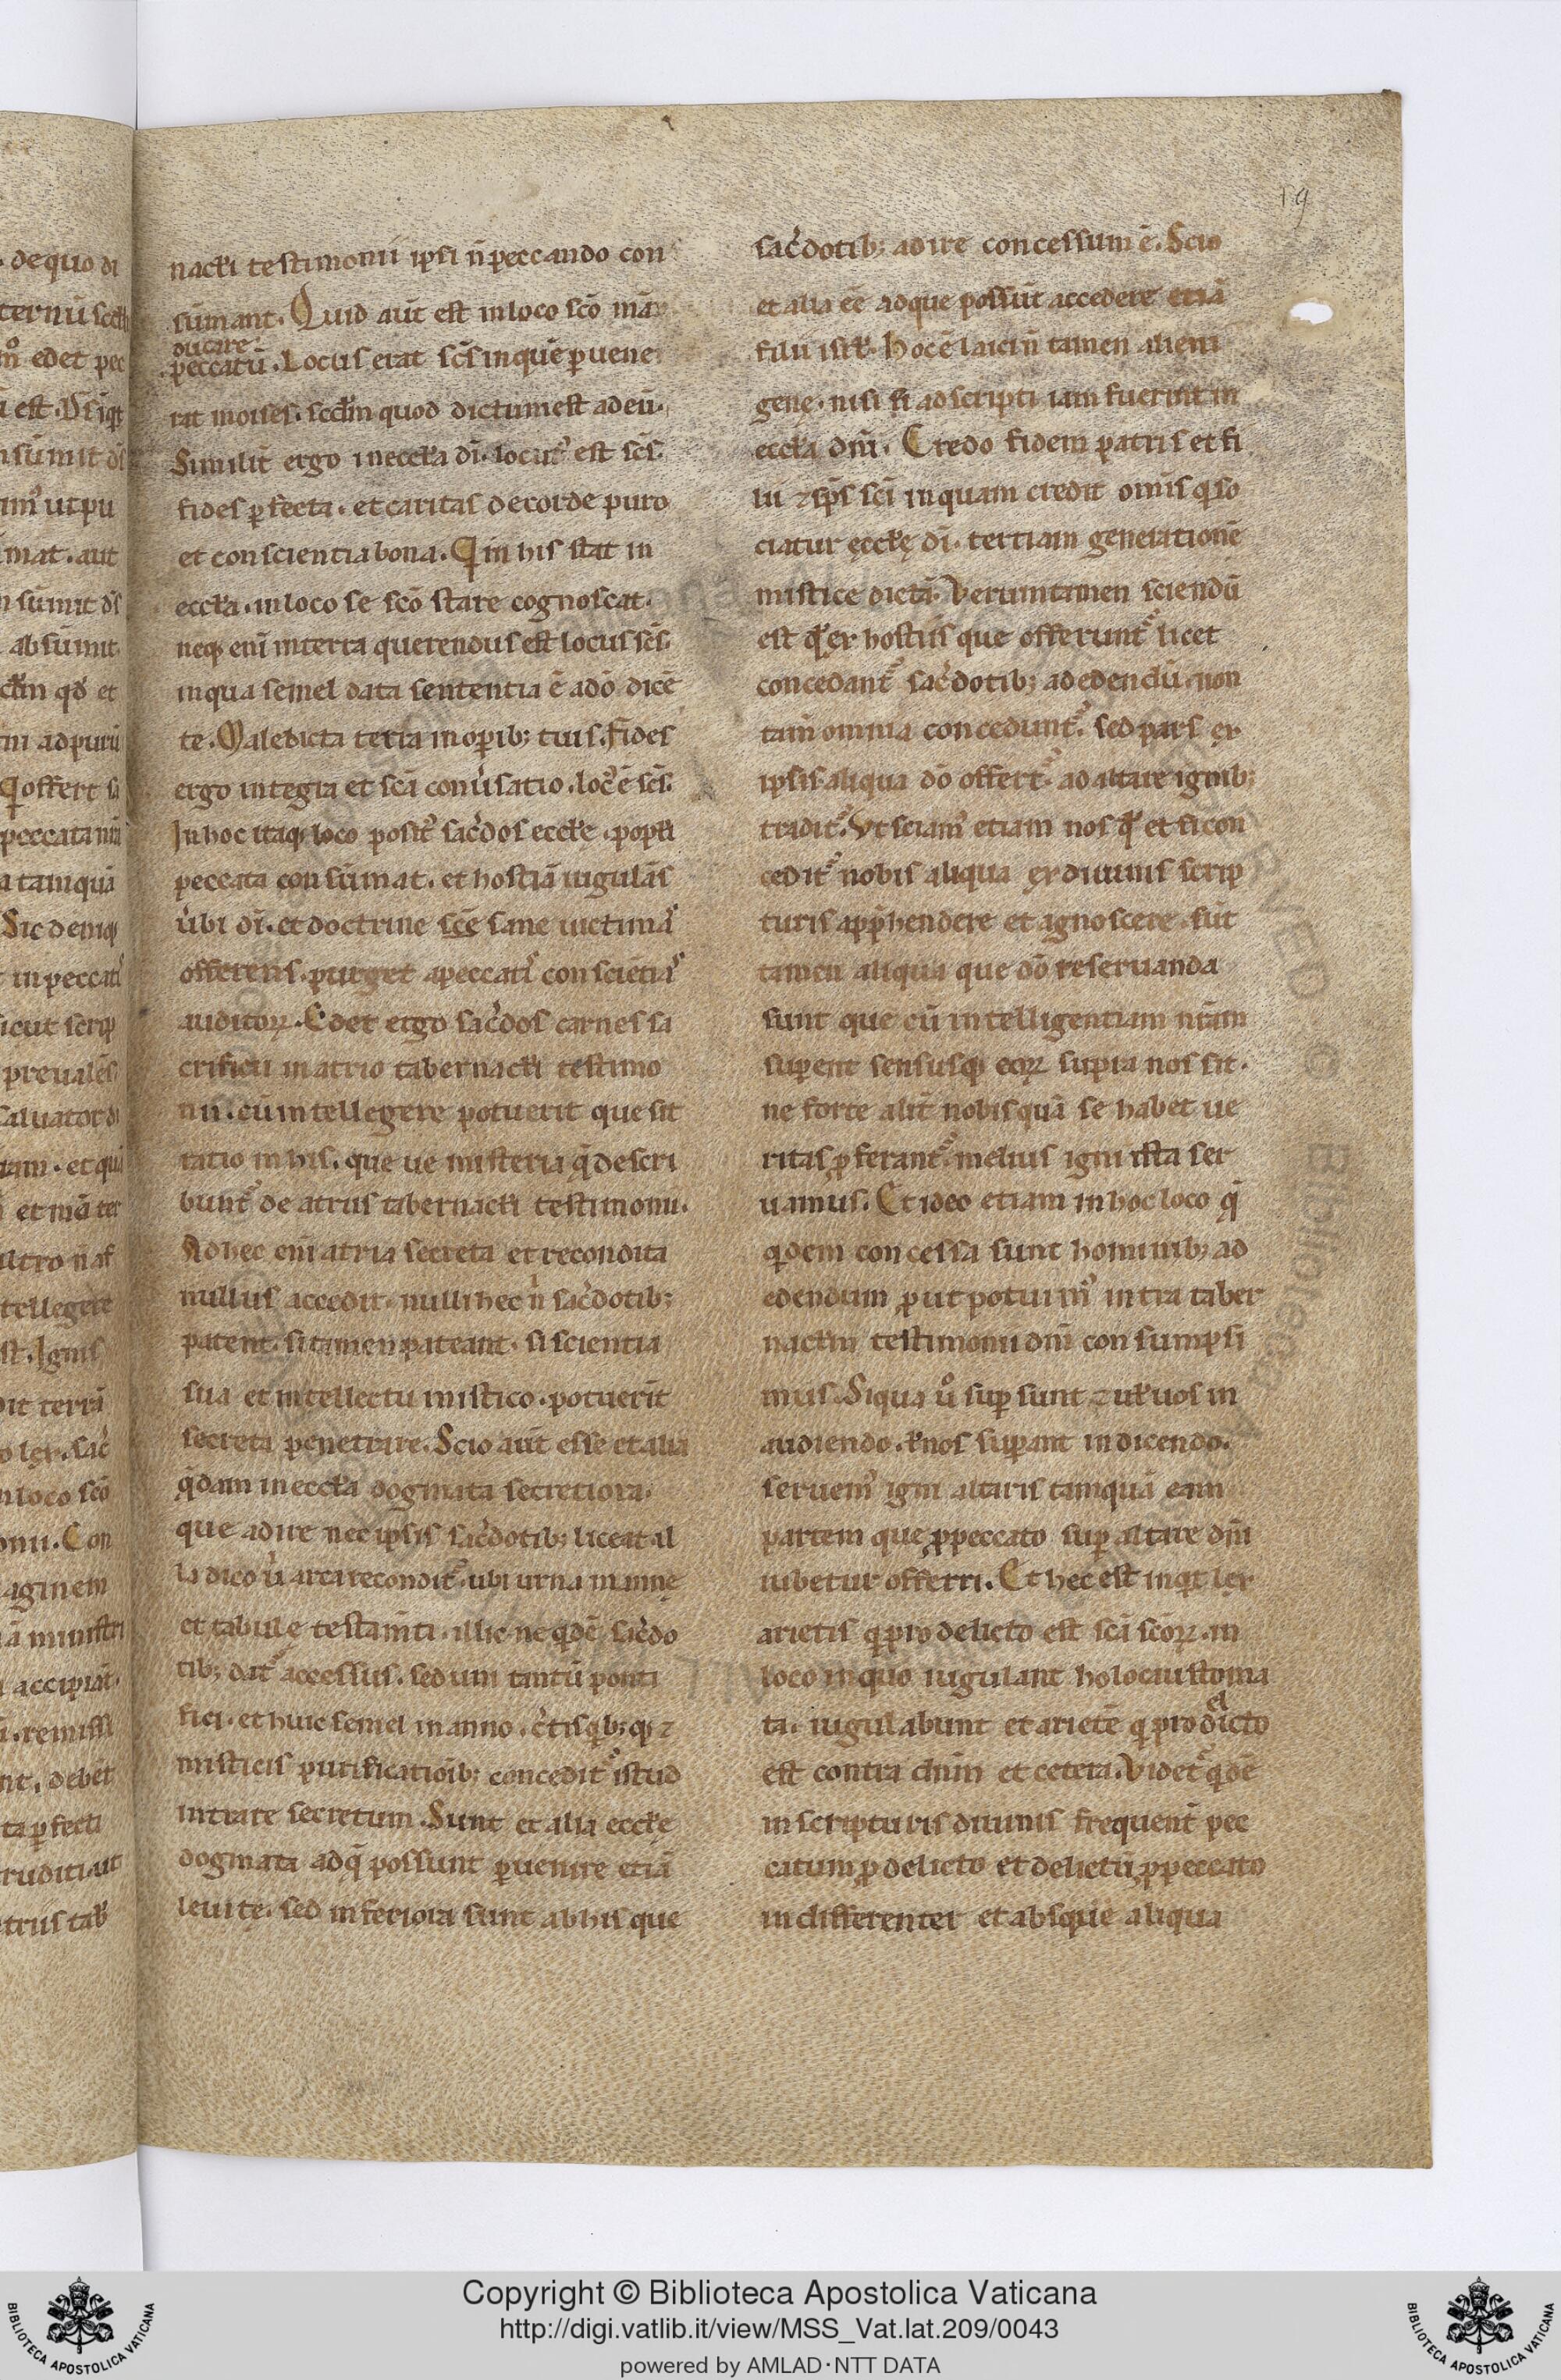 19
nacłi testimonii ipsi n̄ peccando con
sūmant. Quid aūt est in loco sc̄o mā
ducare
peccatū. Locus erat sc̄s in quē ꝑuene
rat moises. sc̄dm quod dictum est ad eū.
Similit̄ ergo in eccł̄a dī. locus᾿ est sc̄s.
fides ꝑfecta. et caritas de corde puro
et conscientia bona. Qi in his stat in
eccł̄a. in loco se sc̄o stare cognoscat.
neq; enī in terra querendus est locus sc̄s.
in qua semel data sententia ē a dō dicē
te. Maledicta terra in oꝑib; tuis. fides
ergo integra et sc̄a conûsatio. loc᾿ ē sc̄s.
In hoc itaq; loco posit᾿ sac̄dos eccł̄e. popłi
peccata consūmat. et hostiā iugulās
ûbi dī. et doctrine sc̄e sane uictima᷒
offerens. purget a peccatis conscietia᷒
auditoꝝ. Edet ergo sac̄dos carnes sa
crificii in atrio tabernacłi testimo
nii. cū intellegere potuerit que sit
ratio in his. que ue misteria q̄ descri
bunt᷒ de atriis tabernacłi testimonii.
Ad hec enī atria secreta et recondita
nullus accedit. nulli hec n̄ sac̄dotib;
patent. si tamen pateant. si scientia
sua et intellectu mistico. potuerīt
secreta penetrare. Scio aūt esse et alia
q̄dam in eccł̄a dogmata secretiora.
que adire nec ipsis sac̄dotib; liceat. il
la dico û arca recondit᷒. ubi urna mannę
et tabulę testam̄ti. illic ne qidē sac̄do
tib; dat᷒ accessus. sed uni tantū ponti
fici. et huic semel in anno. c̄tis qib;q; ⁊
misticis purificatioīb; concedit᷒ istud
intrare secretum. Sunt et alia eccł̄ę
dogmata ad q̄ possunt ꝑuenire etiā
leuite. sed inferiora sunt ab his que
sac̄dotib; adire concessum ē. Scio
et alia eē ad que possūt accedere etiā
filii isrł. hoc ē laici n̄ tamen alieni
genę. nisi si adscripti iam fuerint in
eccł̄a dn̄i. Credo fidem patris et fi
lii ⁊ sp̄s sc̄i in quam credit omīs qi so
ciatur ęccł̄ę dī. tertiam generationē
mistice dictā. Veruntamen sciendū
est qd ex hostiis que offerunt᷒ licet
concedant᷒ sac̄dotib; ad edendū. non
tam̄ omnia concedunt᷒. sed pars ex
ipsis aliqua dō offert᷒. ad altare ignib;
tradit᷒. Vt sciam᷒ etiam nos qd et si con
cedit᷒ nobis aliqua ex diuinis scrip
turis app̄hendere et agnoscere. sūt
tamen aliqua que dō reseruanda
sunt que cū intelligentiam nr̄am
suꝑent sensusq; eoꝝ supra nos sit.
ne forte alit̄ nobis quā se habet ue
ritas ꝓferant᷒. melius igni ista ser
uamus. Et ideo etiam in hoc loco q̄
qidem concessa sunt hominib; ad
edendum ꝓut potuim᷒ intra taber
nactm testimonii dn̄i consumpsi
mus. Siqua ů suꝑ sunt ⁊ uł uos in
audiendo. ł nos suꝑant in dicendo.
seruem᷒ igni altaris tamquā eam
partem que ꝓ peccato suꝑ altare dn̄i
iubetur offerri. Et hec est inqit lex
arietis qi pro delicto est sc̄a sc̄oꝝ. in
loco in quo iugulant holocaustoma
el
ta. iugulabunt et arietē qi pro dicto
est contra dn̄m et cetera. Videt᷒ qidē
in scripturis diuinis frequent̄ pec
catum ꝓ delicto et delictū ꝓ peccato
indifferenter et absque aliqua
Copyright © Biblioteca Apostolica Vaticana
http://digi.vatlib.it/view/MSS_Vat.lat.209/0043
powered by AMLAD·NTT DATA
BIBLIOTECA APOSTOLICA VATICANA
BIBLIOTECA APOSTOLICA VATICANA